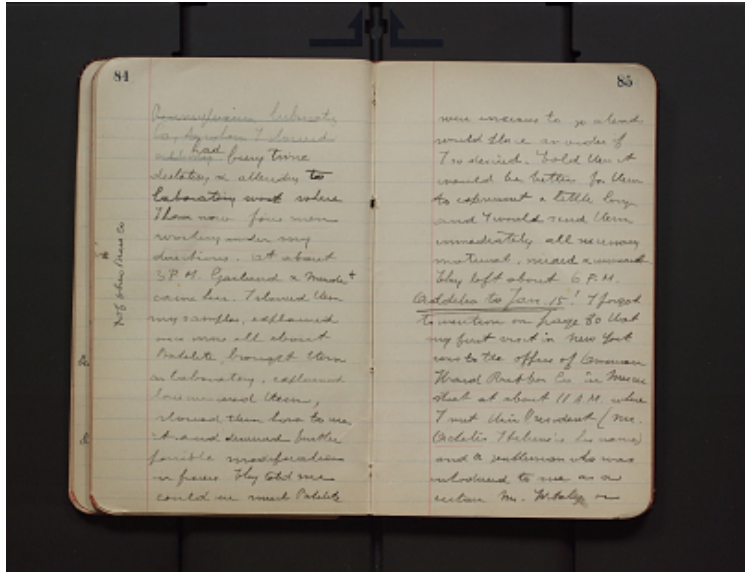 84
Pennsylvania
had busy time
dictating & attending to
Laboratory work where
I have now four men
working under my
directions. At about
3 P.M. Garland &
came here. I showed them
my samples, explained
all about
Bakelite, brought them
in laboratory, explained
them,
showed them how to use
it and further
possible modifications
in process. They told me
could use much Bakelite
of Shaw Press Co
85
were anxious to go ahead
would place an order if
I so desired. I told them it
would be better for them
to experiment a little longer
and I would send them
immediately all necessary
material,
They left about 6 P.M.
Addenda to Jan. 15! I forgot
to mention on page 80 that
my first visit in New York
was to the office of American
Hard Rubber Co in Mercer
street at about 11 A.M. where
I met their President (Mr.
Achelis I believe is his name)
and a gentleman who was
introduced to me as a
certain Mr. or